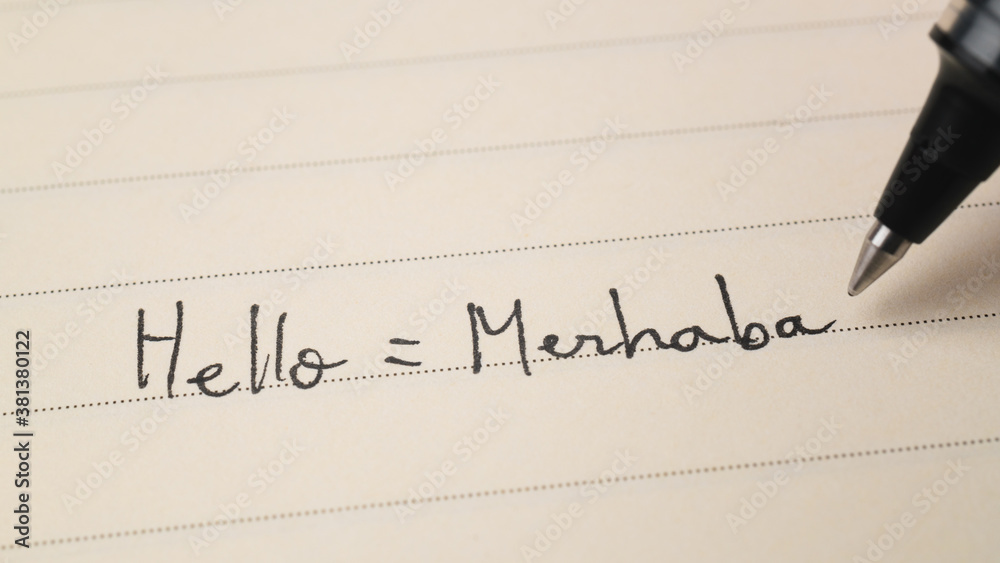 Hello = Merhaba
Adobe Stock | #381380122